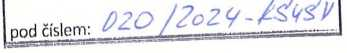 pod číslem: 020/2024-KSUSV